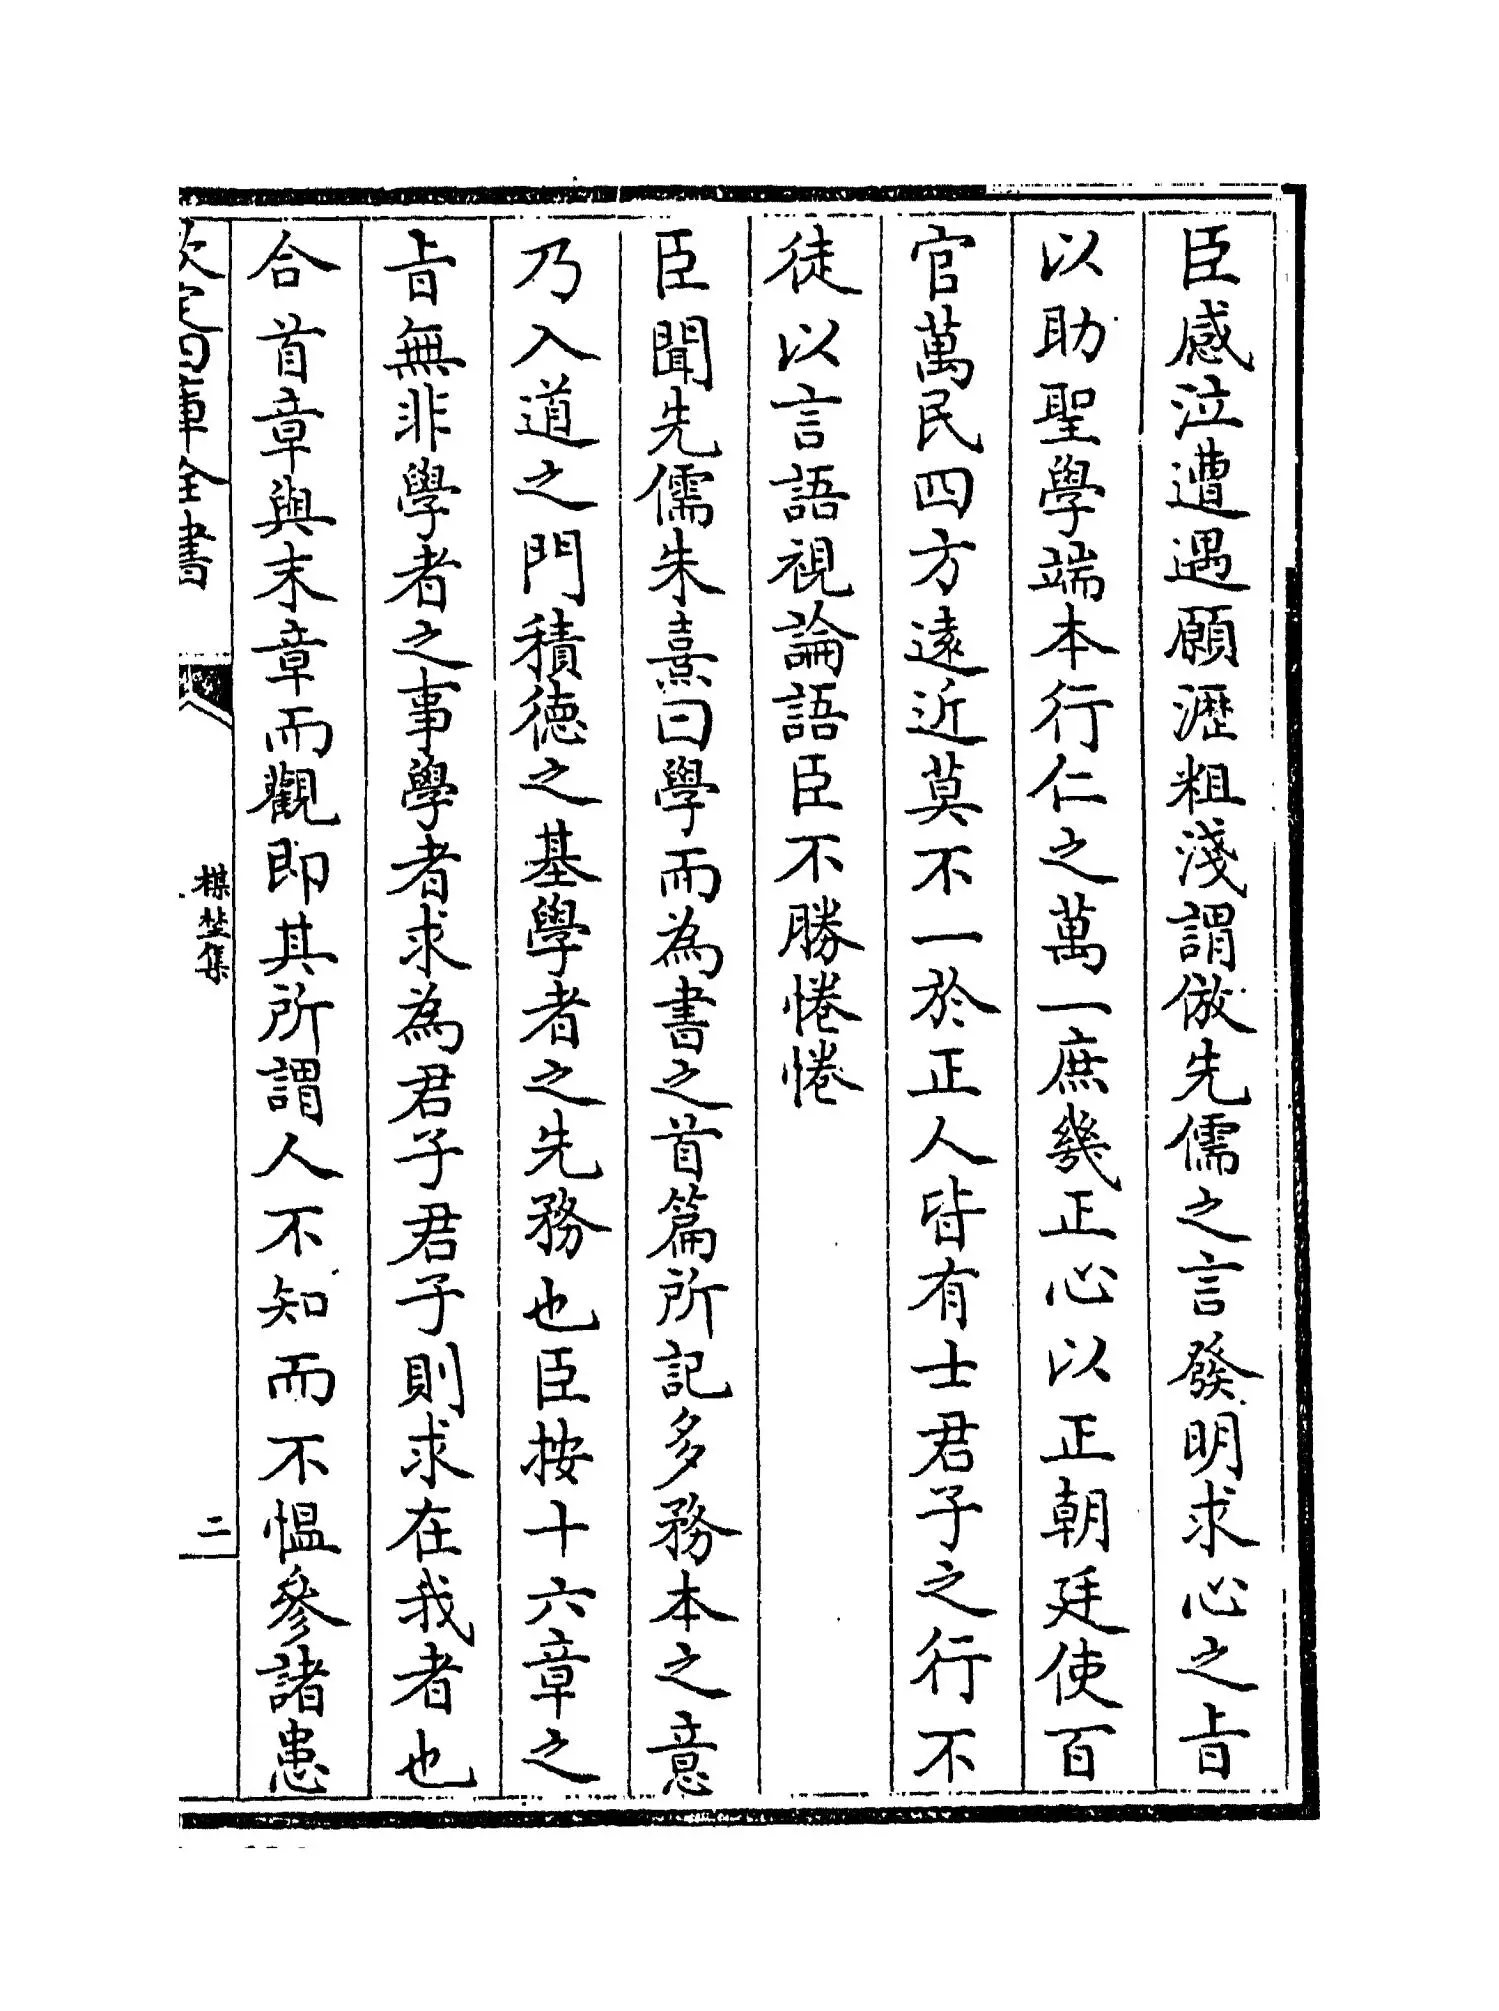 臣感泣遭遇願瀝粗淺謂倣先儒之言發明求心之㫖
以助聖學端本行仁之萬一庶幾正心以正朝廷使百
官萬民四方逺近莫不一於正人皆有士君子之行不
徒以言語視論語臣不勝惓惓
臣聞先儒朱熹曰學而為書之首篇所記多務本之意
乃入道之門積德之基學者之先務也臣按十六章之
㫖無非學者之事學者求為君子君子則求在我者也
合首章與末章而觀即其所謂人不知而不愠參諸患
欽定四庫全書
楳埜集
二